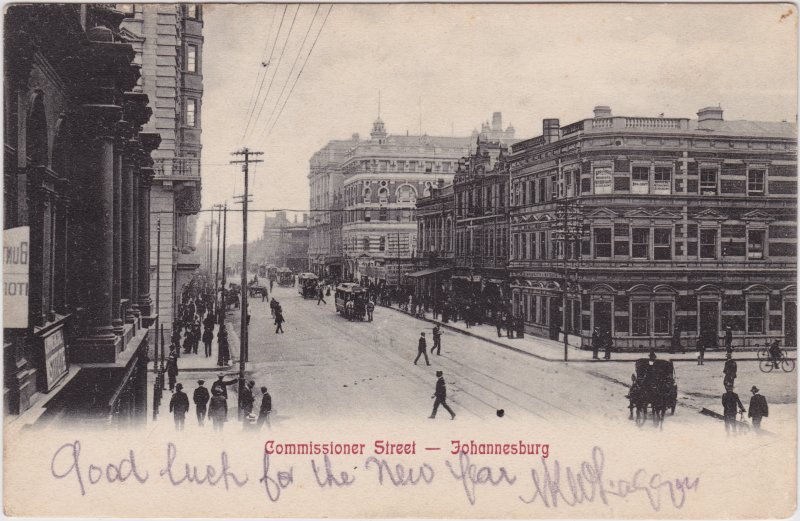 BUNT
TOI
Commissioner Street — Johannesburg
Good luck for the New Year